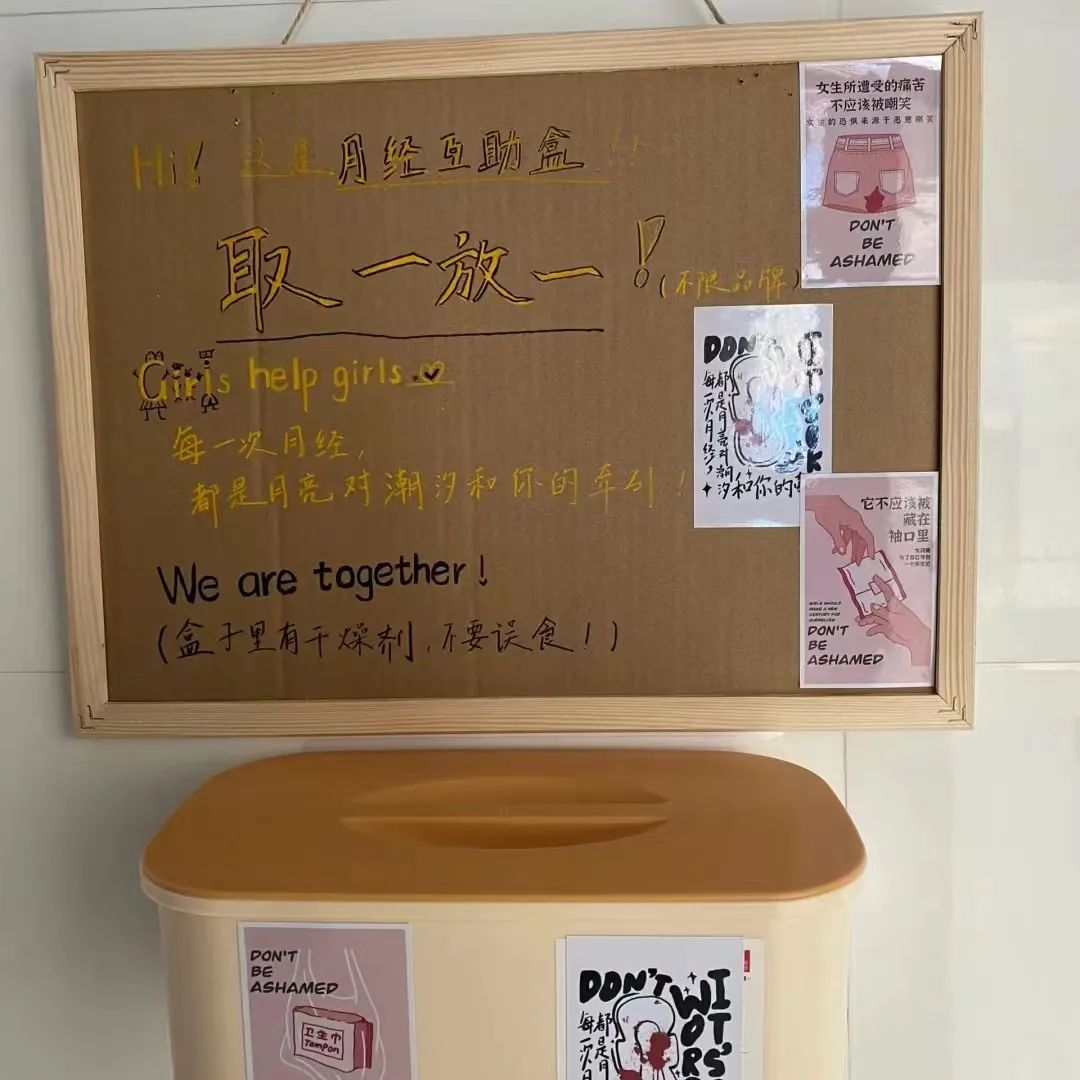 Hi! 这是月经互助盒!!
取一放一!
(不限品牌)
Girls help girls
每一次月经,
都是月亮对潮汐和你的牵引!
We are together!
(盒子里有干燥剂,不要误食!)
女生所遭受的痛苦
不应该被嘲笑
女生的恐惧来源于恶意嘲笑
DON'T
BE
ASHAMED
DON'T
每一次月经,
都是月亮对潮汐
和你的
它不应该被
藏在
袖口里
GIRLS SHOULD
MAKE A NEW
CENTURY FOR
OURSELVES
DON'T
BE
ASHAMED
DON'T
BE
ASHAMED
卫生巾
Tampon
DON'T
WIT
OR'S
每一次月
都是月